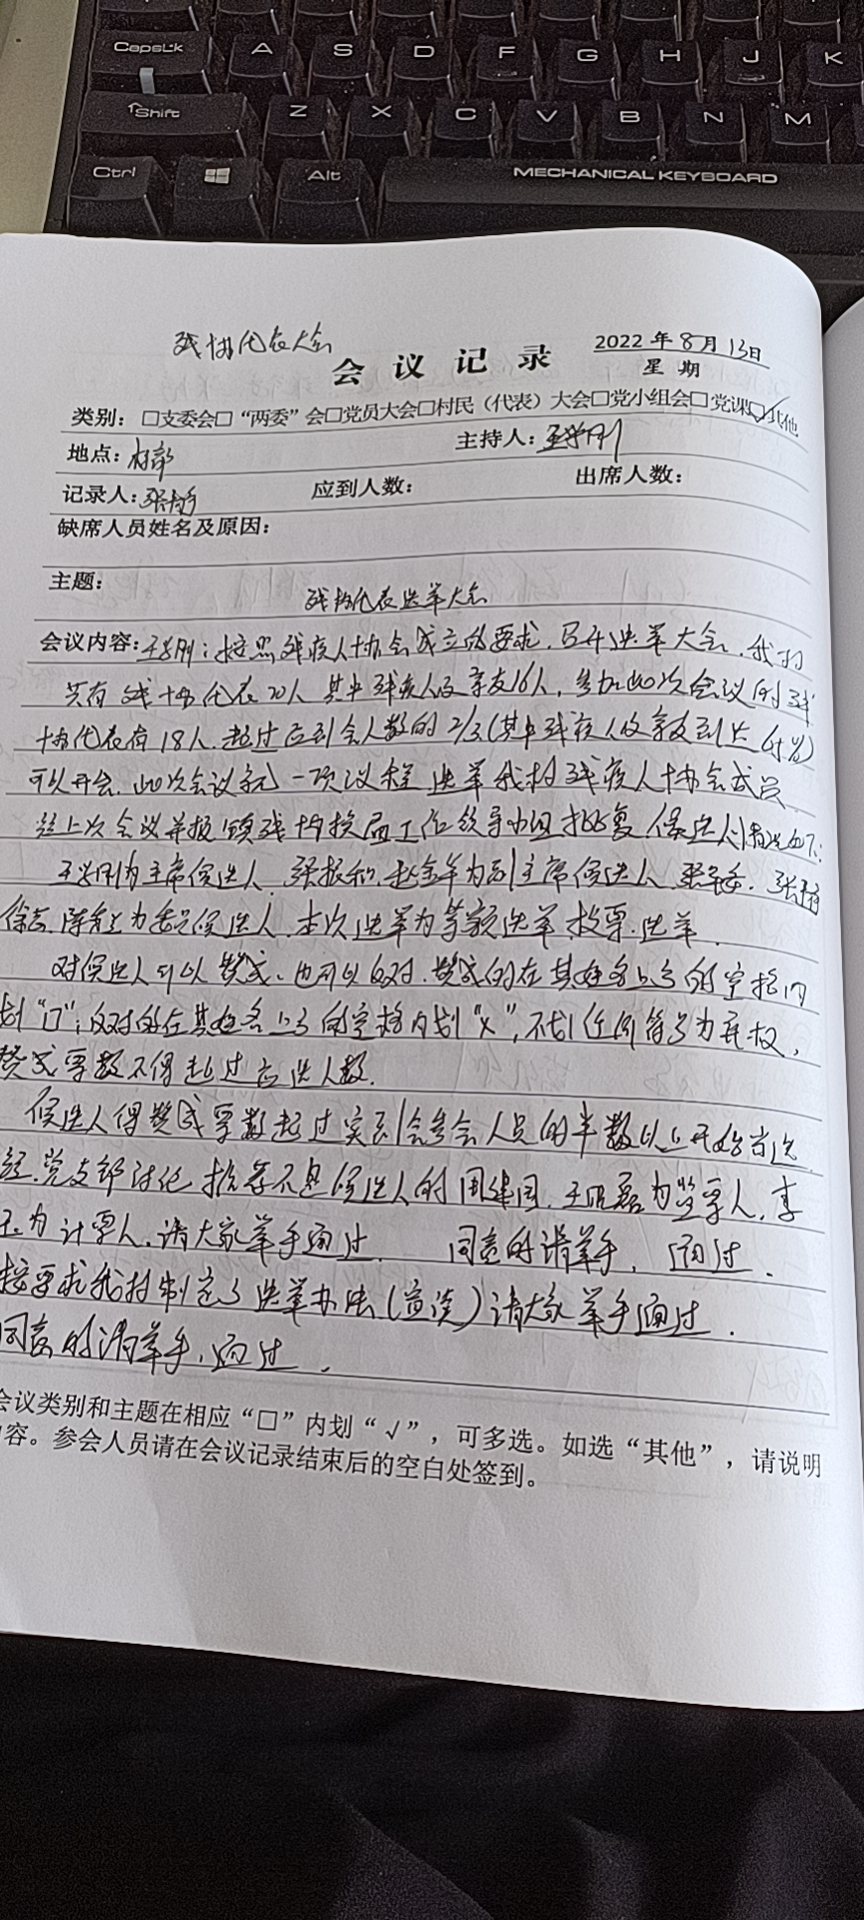 CapsLk A S D F G H J K
↑Shift Z X C V B N M
Ctrl Alt MECHANICAL KEYBOARD
残协代表大会
会议记录
2022年8月13日
星期
类别：□支委会□“两委”会□党员大会□村民（代表）大会□党小组会□党课☑其他
地点：村部 主持人：王学刚
记录人：张静 应到人数： 出席人数：
缺席人员姓名及原因：
主题：
残协代表选举大会
会议内容：王学刚：按照残疾人协会成立的要求，召开选举大会，我村
共有残协代表20人，其中残疾人及亲友16人，参加此次会议的残
协代表有18人，超过应到会人数的2/3（其中残疾人及亲友到达
可以开会，此次会议就一项议程，选举我村残疾人协会成员，
经上次会议并报镇残协换届工作领导小组批复，候选人情况如下：
王学刚为主席候选人，张振和、赵金年为副主席候选人，张静
为委员候选人，本次选举为等额选举，投票选举。
对候选人可以赞成、也可以反对，赞成的在其姓名上方的空格内
划“O”；反对的在其姓名上方的空格内划“×”，不划任何符号为弃权，
赞成票数不得超过应选人数。
候选人得赞成票数超过实到会参会人员的半数以上开始当选。
经党支部讨论，推荐不是候选人的周建国、王 为监票人，李
玉为计票人，请大家举手通过。 同意的请举手，通过。
按要求我村制定了选举办法（宣读）请大家举手通过。
同意的请举手，通过。
会议类别和主题在相应“□”内划“√”，可多选。如选“其他”，请说明
容。参会人员请在会议记录结束后的空白处签到。